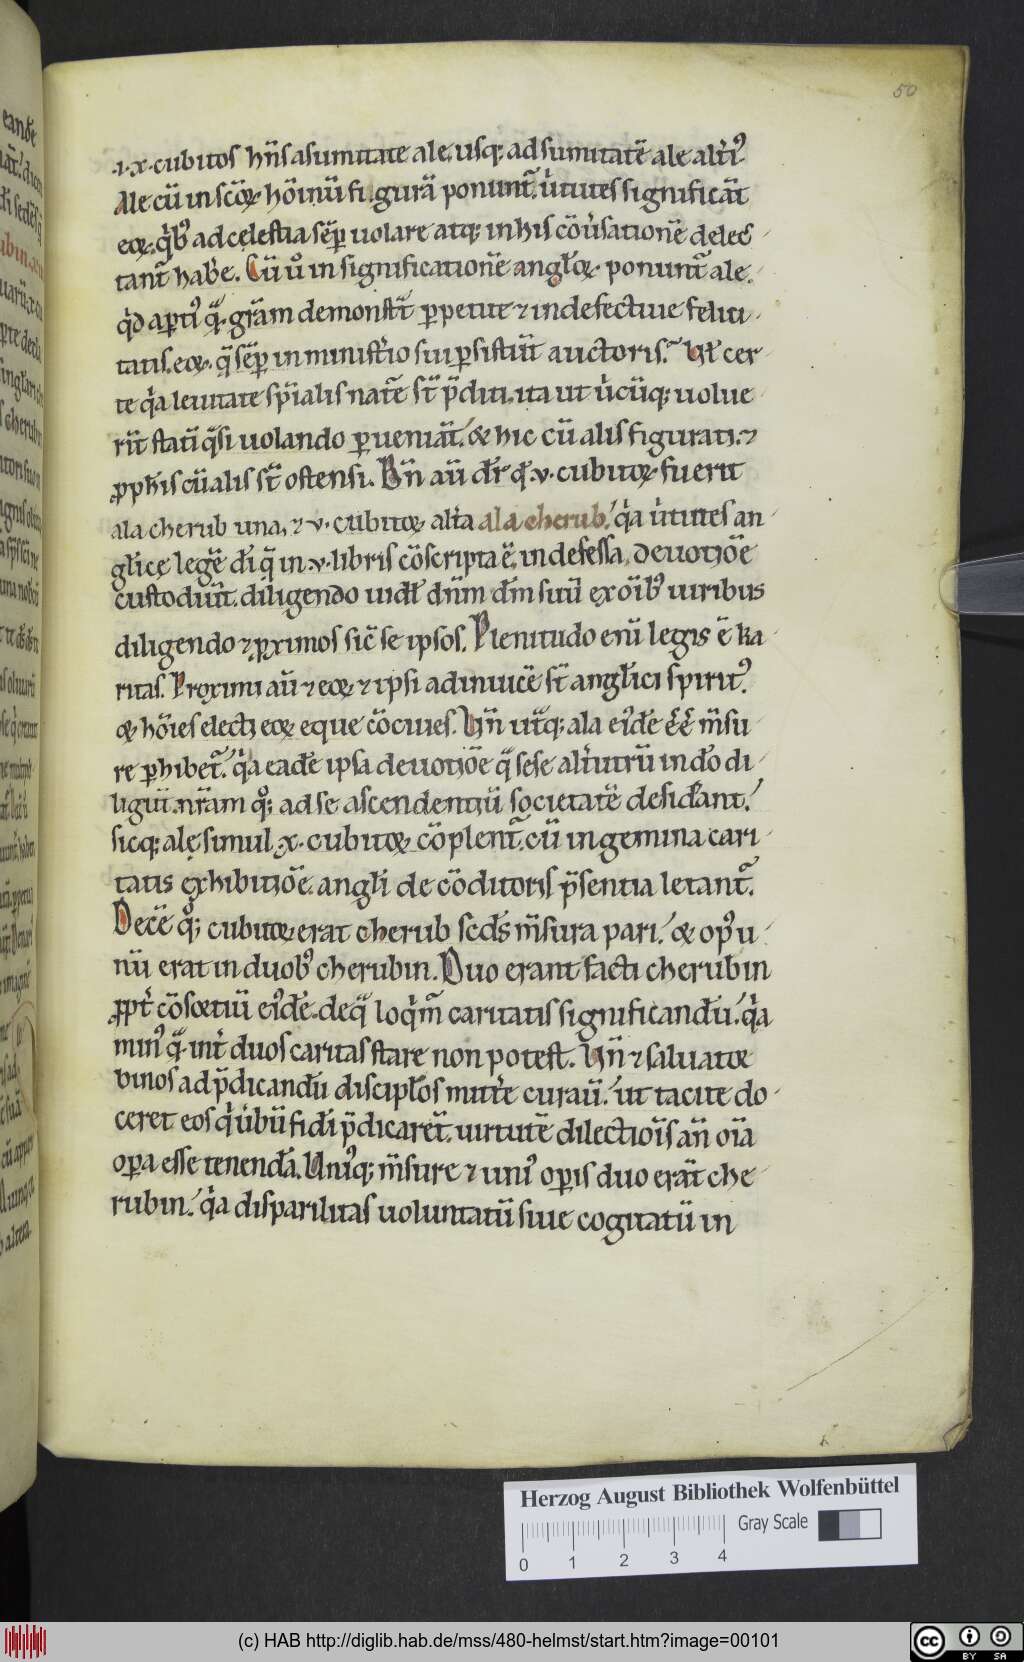 50
.i.x. cubitos hn̄s a sumitate ale. usq; ad sumitatē ale altiꝰ.
Ale cū in scōꝝ hōinū figura ponunt̄. ùtutes significāt
eoꝝ. qͥbꝰ ad celestia sēp uolare atq; in his cōùsationē delec
tant̄ habe̅. Cū uͦ in significationē angłoꝝ ponunt̄ ale.
qͥd aptiꝰ q̄. grām demonstᷓt ꝑpetue ⁊ indefectiue felici
tatis eoꝝ. q̄ sēp in ministͥio sui ꝑsistūt auctoris. Ut̄ cer
te qͥa leuitate spͥialis natē st̄ p̄diti. ita ut ùcūq; uolue
rīt statī qͣsi uolando ꝑueniāt. ⁊ hic cū alis figurati. ⁊
ꝓphīs cū alis st̄ ostensi. Bn̄ aū dr̄ qd̄ .v. cubitoꝝ fuerit
ala cherub una, ⁊ v. cubitoꝝ altͣa ala cherub. qͥa ùtutes an
gl̄ice̜ lege̅ dī q̄ in .v. libris cōscripta ē, indefessa deuotiōe
custodiūt. diligendo uidł dn̄m dm̄ suū ex ōibꝰ uiribus
diligendo ⁊ ꝓximos sic̄ se ipsos. Plenitudo enī legis ē ka
ritas. Proximi aū ⁊ eoꝝ ⁊ ipsi adinuicē st̄ angłici spiritꝰ.
⁊ hōies electi eoꝝ eque cōciues. Un̄ utͣq; ala eiꝰdē ēē m̄su
re ꝑhibet̄. qͥa eadē ipsa deuotiōe q̄ sese altͥutrū in do̅ di
ligūt. nr̄am qͦq; ad se ascendentiū societatē desidͣant.
sicq; ale̜ simul .x. cubitoꝝ cōplent̄. cū in gemina cari
tatis exhibitiōe. angłi de cōditoris p̄sentia letant̄.
Decē qͦq; cubitoꝝ erat cherub scds̄ m̄sura pari. ⁊ opꝰ u
nū erat in duobꝰ cherubin. Duo erant facti cherubin
ꝓpt̄ cōsortiū eiꝰdē. de q̄ loqͥm̄ caritatis significandū. qͥa
minꝰ q̄ int̄ duos caritas stare non potest. Un̄ ⁊ saluator
binos ad p̄dicandū discipłos mittͤe curauī. ut tacite do
ceret eos qͥ ùbū fidi̅ p̄dicarēt. uirtutē dilectiōīs an̄ oīa
oꝑa esse tenendā. Uniꝰq; m̄sure ⁊ uniꝰ oꝑis duo erāt che
rubin. qͥa disparilitas uoluntatū siue cogitatū in
Herzog August Bibliothek Wolfenbüttel
Gray Scale
0 1 2 3 4
(c) HAB http://diglib.hab.de/mss/480-helmst/start.htm?image=00101
cc BY SA